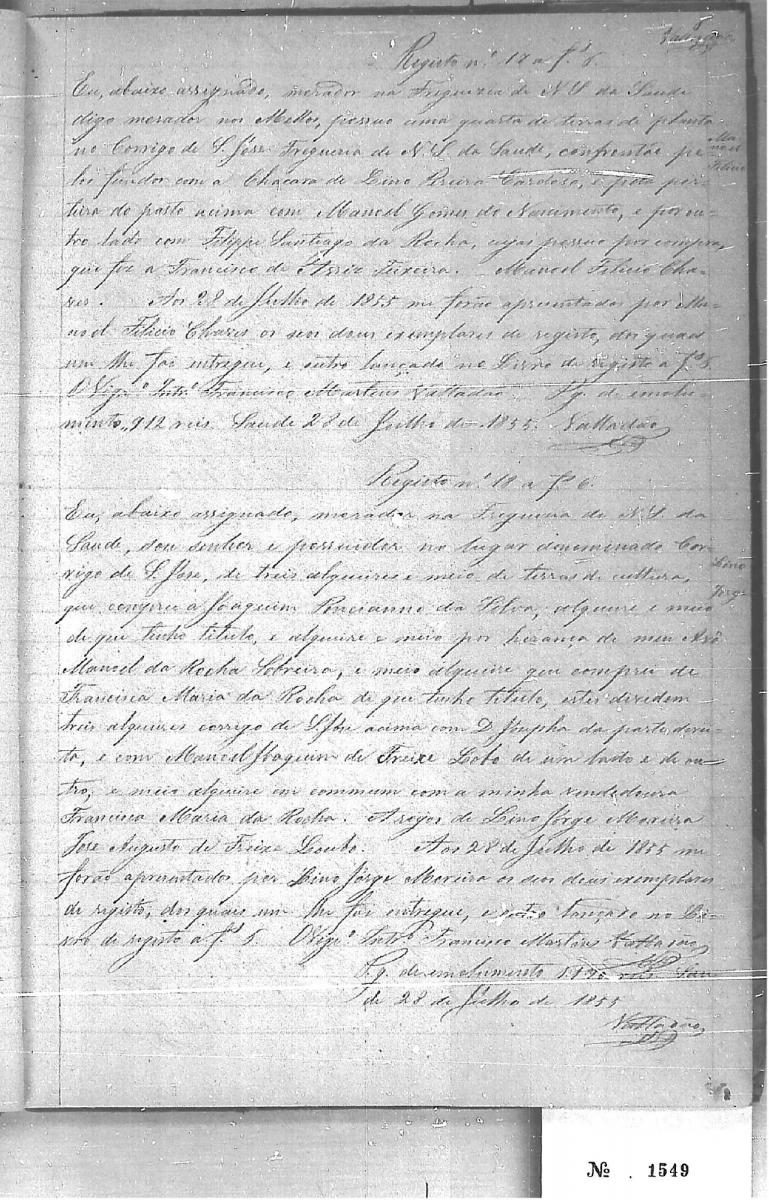 8
Valladão
Registo n.º 17 a f.s 5.
Eu, abaixo assignado, morador na Freguezia de N. S. da Saude
digo morador nos Mellos, possuo uma quarta de terras de planta
no Corrigo de S. José Freguezia de N. S. da Saude, confrontar pe-
Manoel Felicio
los fundos com a Chacara de Lino Pereira Cardoso, e pela per-
tura do pasto acima com Manoel Gomes do Nascimento, e por ou-
tro lado com Filippe Santiago da Rocha, cujas possuo por compra,
que fiz a Francisco de Assiz Teixeira. Manoel Felicio Cha-
ves. Aos 28 de Julho de 1855 me forão apresentados por Ma-
noel Felicio Chaves os seos dous exemplares de registo, dos quaes
um lhe foi entregue, e outro lançado no Livro de registo a f.s 5.
O Vigr.º Intr.º Francisco Martins Valladão. Pg. de emolu-
mento,, 912 reis. Saude 28 de Julho de 1855. Valladão
Registo n.º 18 a f.s 6.
Eu, abaixo assignado, morador na Freguezia de N. S. da
Saude, sou senhor e possuidor no lugar denominado Cor-
Lino Jorge
rigo de S. José, de treis alqueires e meio de terras de cultura,
que comprei a Joaquim Poncianno da Silva, alqueire e meio
de que tenho titulo, e alqueire e meio por herança de meu Avô
Manoel da Rocha Sobreira, e meio alqueire que comprei de
Francisca Maria da Rocha de que tenho titulo, estes dividem
treis alqueires corrigo de S. José acima com D. Josepha da parte direi-
ta, e com Manoel Joaquim de Freixe Lobo de um lado e de ou-
tro, e meio alqueire em commum com a minha vendedoura
Francisca Maria da Rocha. A rogos de Lino Jorge Moreira
Jose Augusto de Freixe Loubo. Aos 28 de Julho de 1855 me
forão apresentados por Lino Jorge Moreira os seos dous exemplares
de registo, dos quaes um lhe foi entregue, e outro lançado no Li-
vro de registo a f.s 5. O Vigr.º Intr.º Francisco Martins Valladão
Pg. de emolumento reis Sau-
de 28 de Julho de 1855
Valladão
Nº . 1549